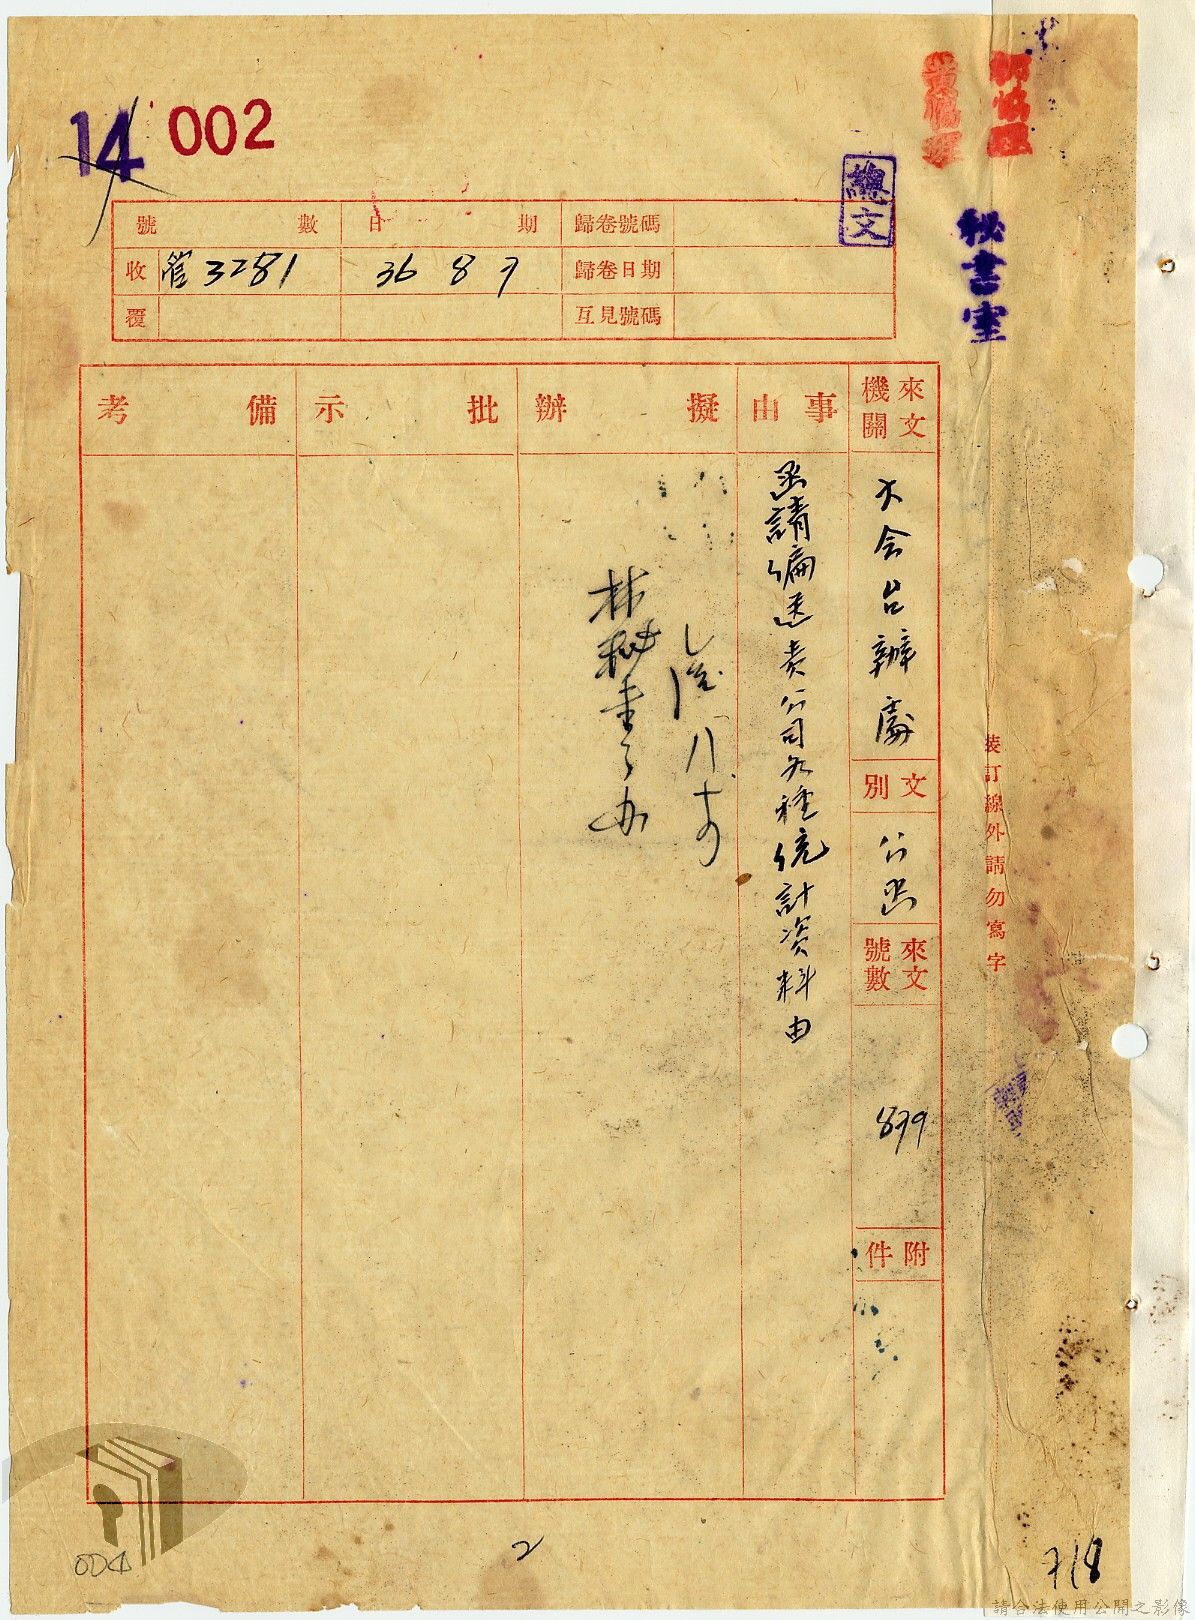 14 002
總文
秘書室
號數 日期 歸卷號碼
收 管3281 36 8 7 歸卷日期
覆 互見號碼
來文機關
大会台辦處
文別
公函
來文號數
879
附件
事由
函請編送貴公司各種統計資料由
擬辦
林秘書
批示
備考
裝訂線外請勿寫字
004
2
718
請合法使用公開之影像